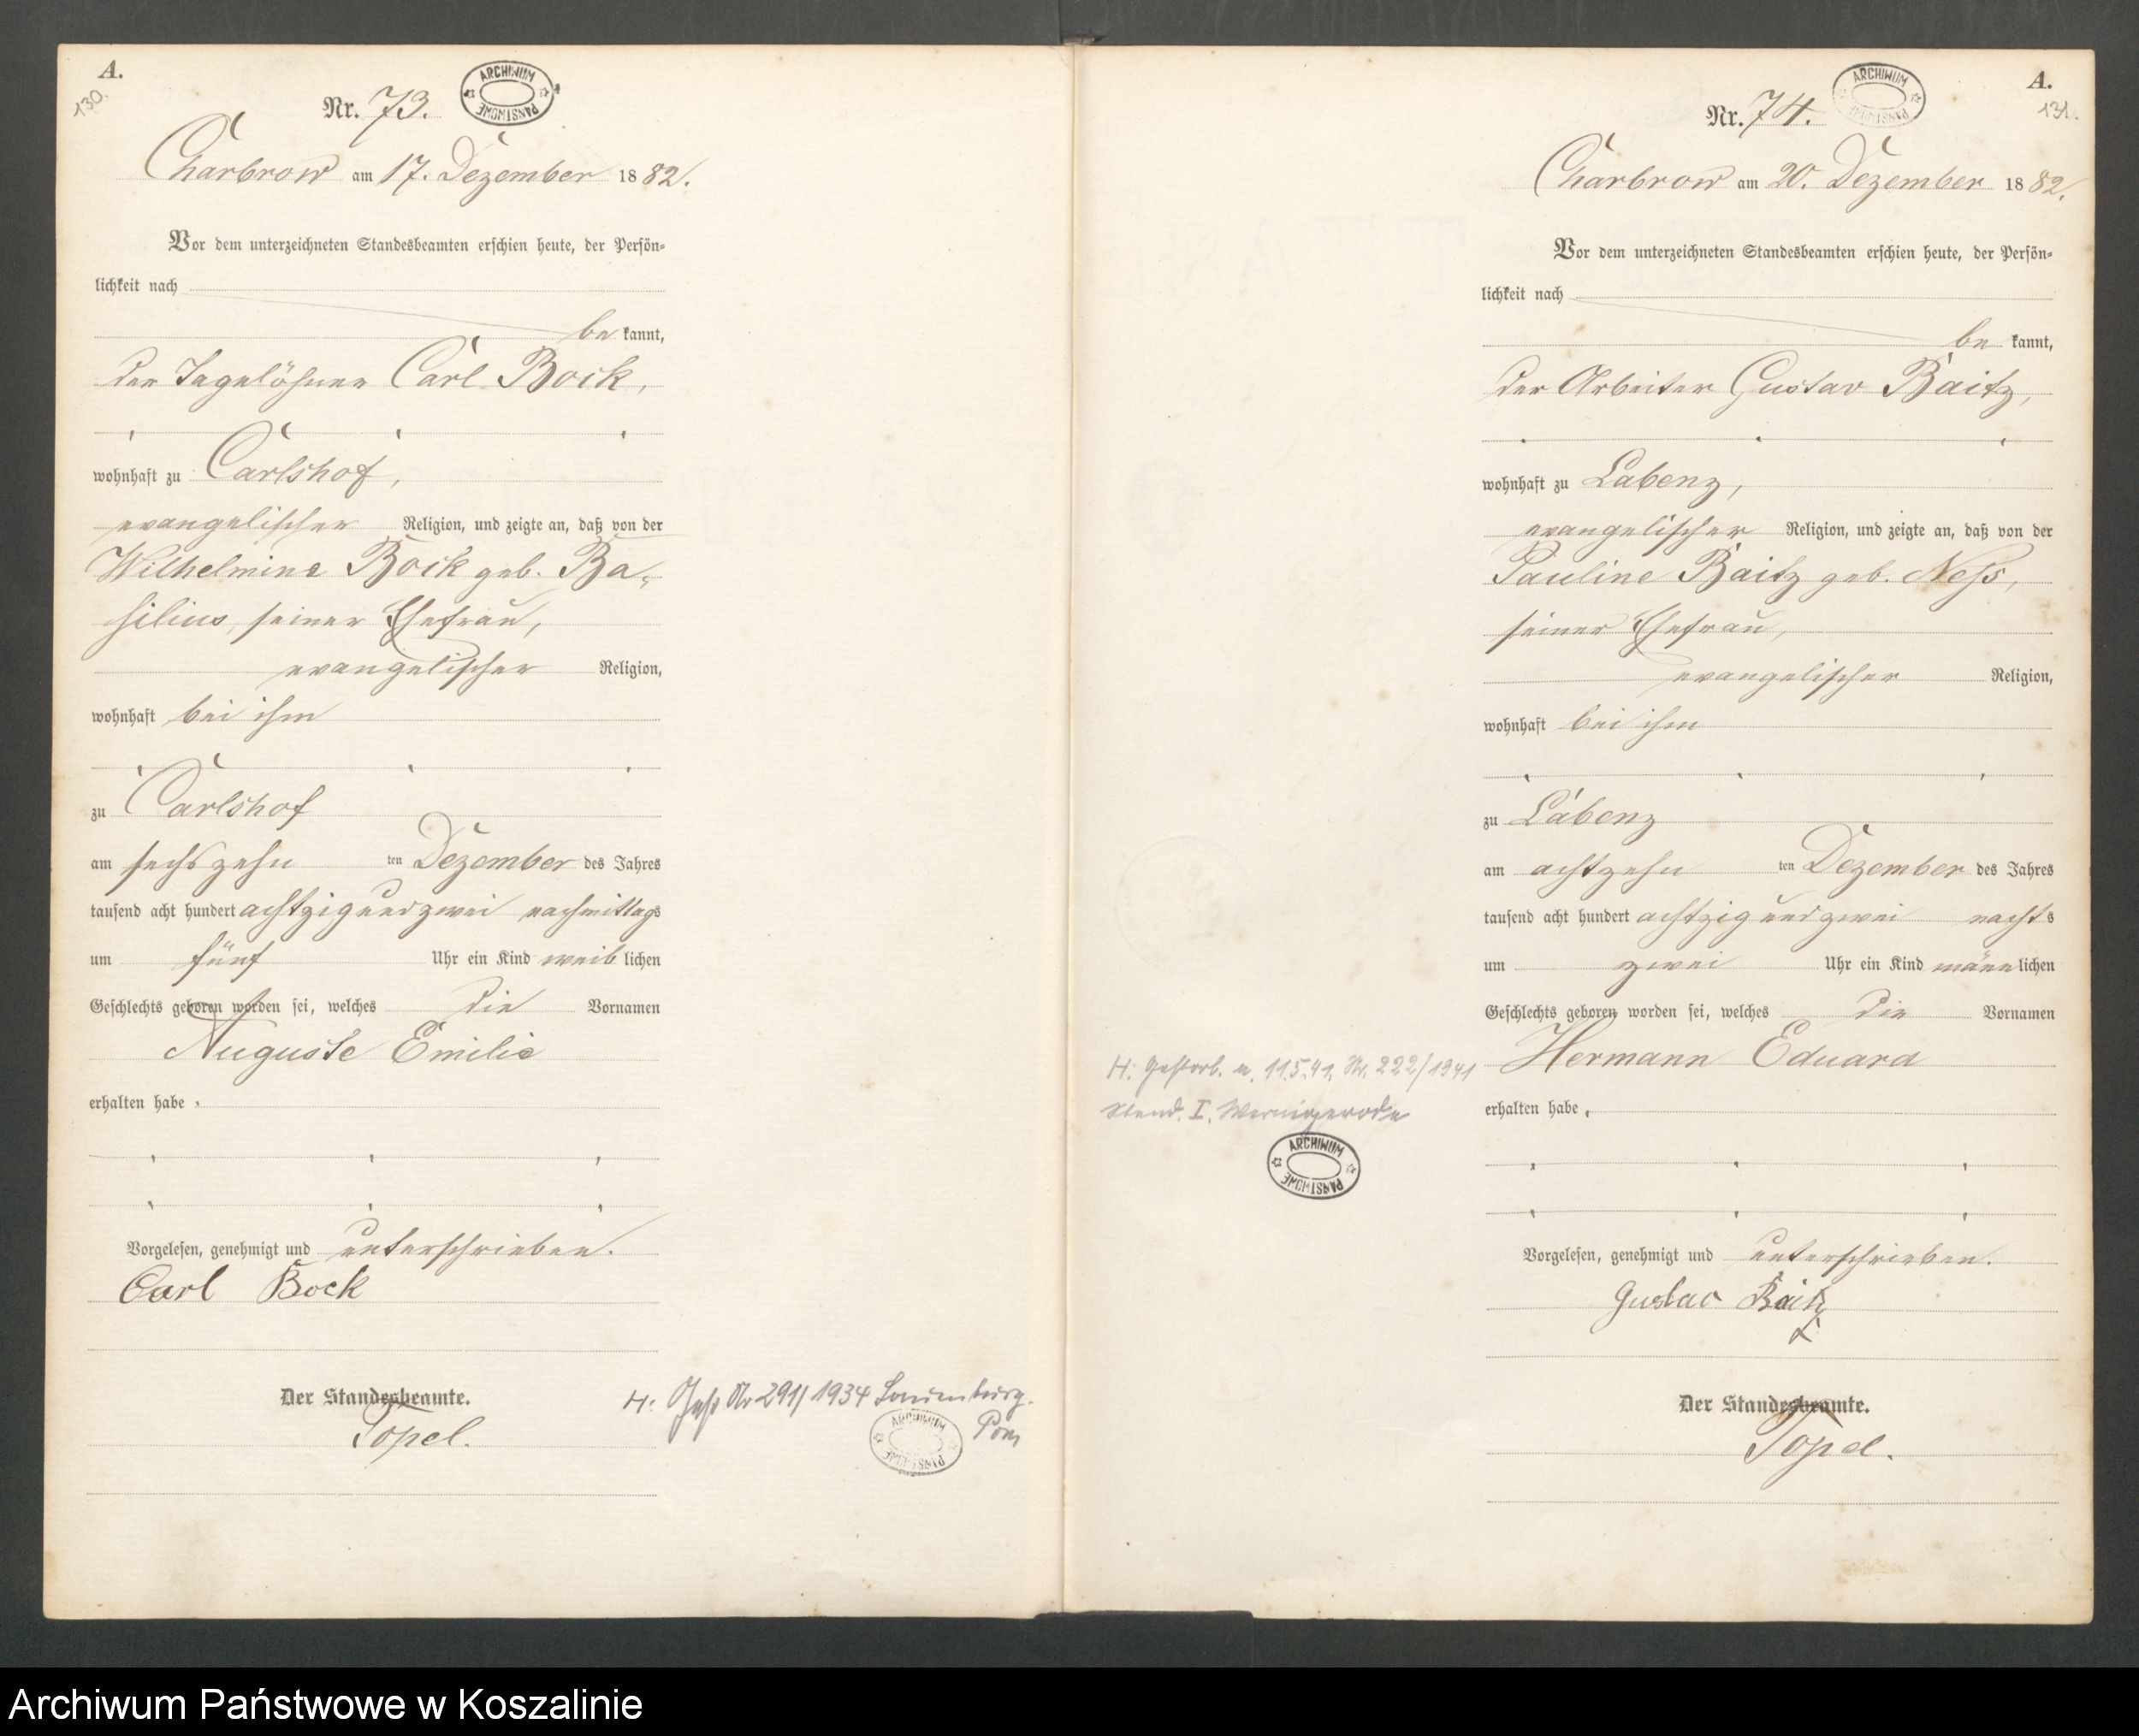 A.
130.
Nr. 73.
ARCHIWUM PAŃSTWOWE
Charbrow am 17. Dezember 1882.
Vor dem unterzeichneten Standesbeamten erschien heute, der Persön-
lichkeit nach
be kannt,
der Tagelöhner Carl Bock,
wohnhaft zu Carlshof,
evangelischer Religion, und zeigte an, daß von der
Wilhelmine Bock geb. Ba-
silius, seiner Ehefrau,
evangelischer Religion,
wohnhaft bei ihm
zu Carlshof
am sechszehn ten Dezember des Jahres
tausend acht hundert achtzig und zwei nachmittags
um fünf Uhr ein Kind weib lichen
Geschlechts geboren worden sei, welches die Vornamen
Auguste Emilie
erhalten habe.
Vorgelesen, genehmigt und unterschrieben.
Carl Bock
Der Standesbeamte.
Topel.
H: Nr 291/1934 Lauenburg.
Pom
ARCHIWUM PAŃSTWOWE
A.
131.
Nr. 74.
ARCHIWUM PAŃSTWOWE
Charbrow am 20. Dezember 1882.
Vor dem unterzeichneten Standesbeamten erschien heute, der Persön-
lichkeit nach
be kannt,
der Arbeiter Gustav Baitz,
wohnhaft zu Labenz,
evangelischer Religion, und zeigte an, daß von der
Pauline Baitz geb. Neß,
seiner Ehefrau,
evangelischer Religion,
wohnhaft bei ihm
zu Labenz
am achtzehn ten Dezember des Jahres
tausend acht hundert achtzig und zwei nachts
um zwei Uhr ein Kind männlichen
Geschlechts geboren worden sei, welches die Vornamen
Hermann Eduard
erhalten habe.
H: Gestorb. a. 11.5.41. Nr. 222/1941
Stand. I. Wernigerode
ARCHIWUM PAŃSTWOWE
Vorgelesen, genehmigt und unterschrieben.
Gustav Baitz
Der Standesbeamte.
Topel.
Archiwum Państwowe w Koszalinie